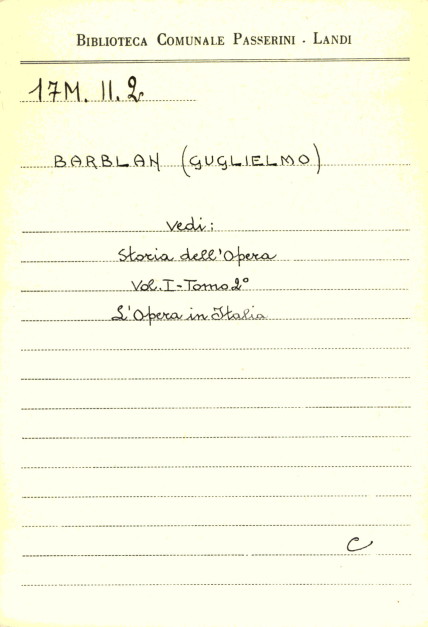 BIBLIOTECA COMUNALE PASSERINI - LANDI
17M. II. 2
BARBLAN (GUGLIELMO)
vedi:
Storia dell'Opera
Vol. I - Tomo 2°
L'Opera in Italia
C